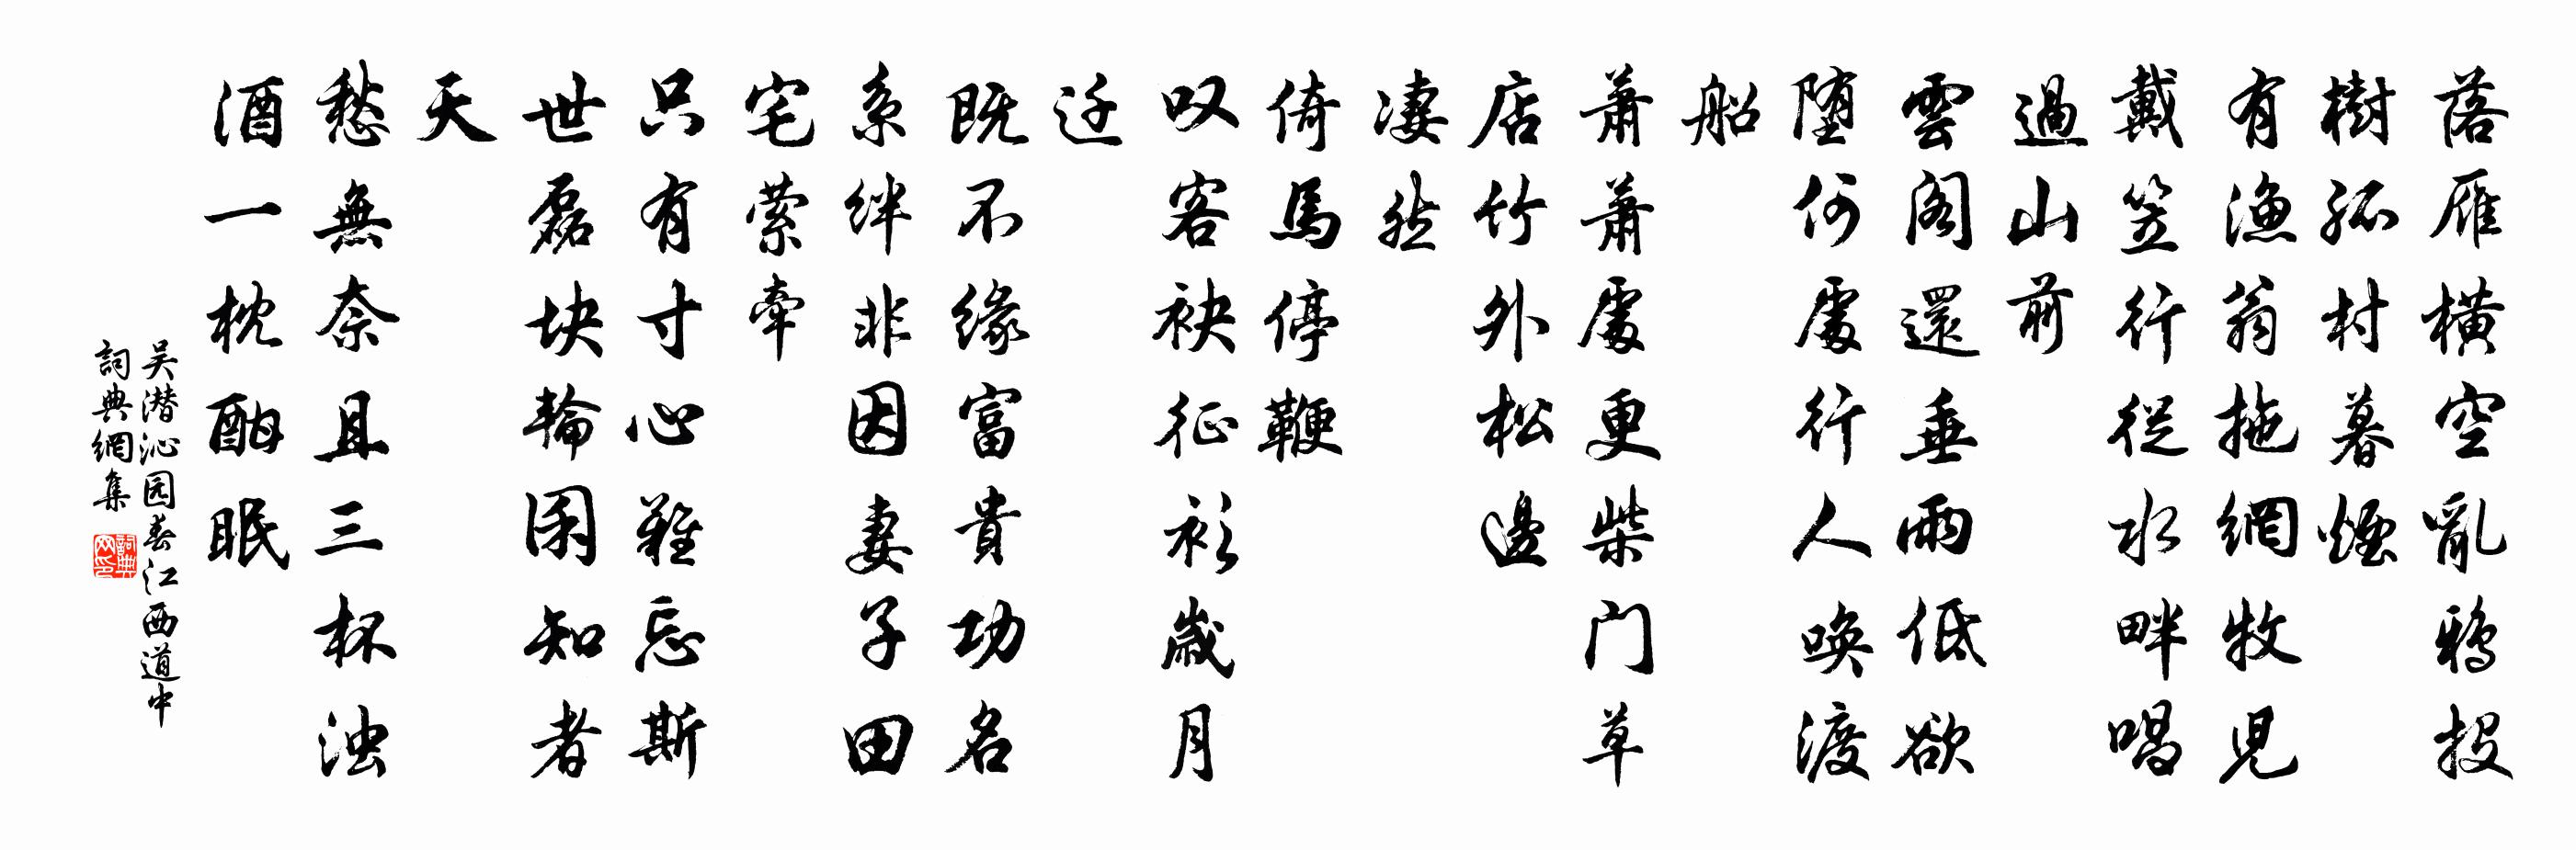 落雁橫空亂鴉投
樹孤村暮煙
有漁翁拖網牧兒
戴笠行從水畔唱
過山前
雲閣還垂雨低欲
墮何處行人喚渡
船
蕭蕭處更柴门草
店竹外松邊
凄然
倚馬停鞭
叹客袂征衫歲月
迁
既不缘富貴功名
系絆非因妻子田
宅萦牽
只有寸心難忘斯
世磊块輪囷知者
天
愁無奈且三杯浊
酒一枕酣眠
吴潜沁园春江西道中
詞典網集
詞典网印